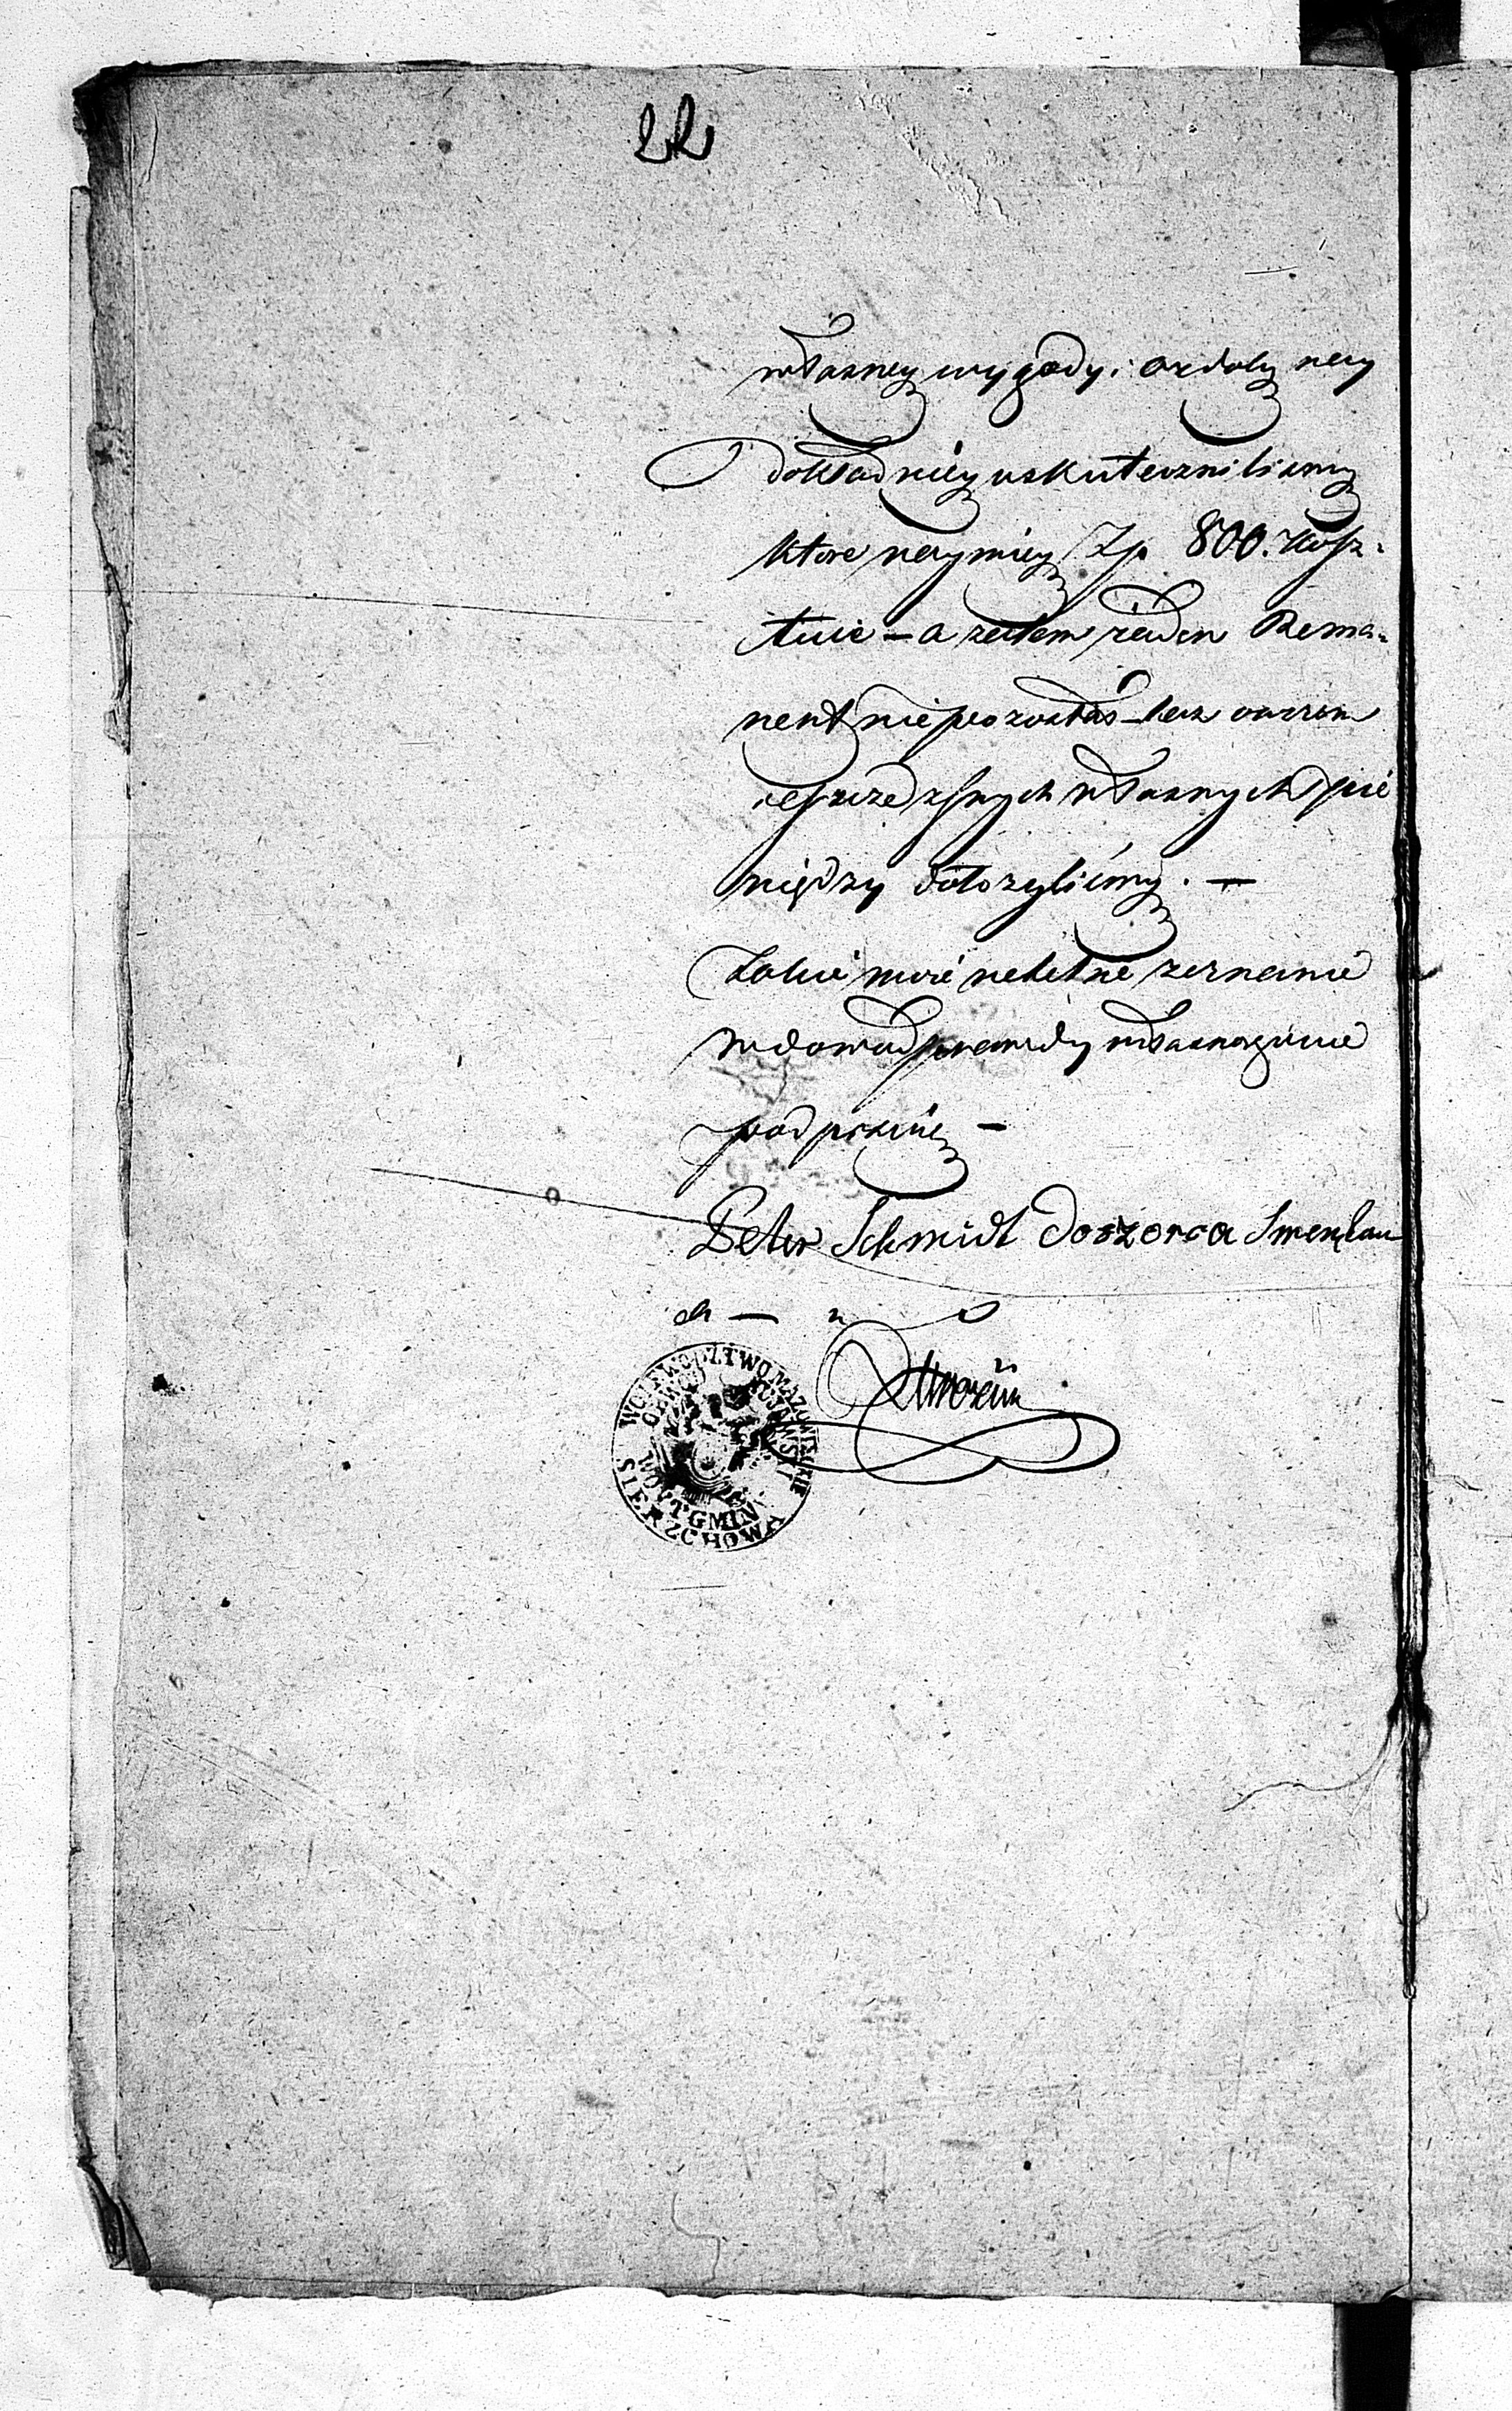 22
własney wygody i ozdoby nay
dokładniey uskuteczniliśmy
które naymniey Zp 800. kosz-
tuie – a zatem żaden Rema-
nent nie pozostał – lecz owszem
ieszcze z swych własnych pie
niędzy dołożyliśmy. –
Takie moie rzetelne zeznanie
w dowod prawdy własnoręcznie
podpisuię –
Peter Schmidt dozorca
WOIEWODZTWO MAZOWIECKIE
OBWOD KUJAWSKI
WOYT GMINY
SIERZCHOWA